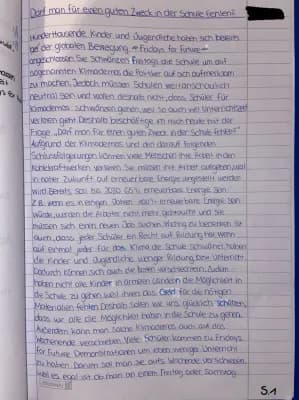 Darf man für einen guten Zweck in der Schule fehlen?
Hunderttausende Kinder und Jugendliche haben sich bereits
bei der globalen Bewegung „Fridays for Future"
angeschlossen. Sie schwänzen Freitags die Schule um auf
sogenannten Klimademos die Politiker auf sich aufmerksam
zu machen. Jedoch müssen Schulen weltanschaulich
neutral sein und wollen deshalb nicht, dass Schüler für
Klimademos schwänzen gehen, weil so auch viel Unterrichtszeit
verloren geht. Deshalb beschäftige ich mich heute mit der
Frage „Darf man für einen guten Zweck in der Schule fehlen?"
Aufgrund der Klimademos und den darauf folgenden
Schlussfolgerungen können viele Menschen ihre Arbeit in den
Kohlekraftwerken verlieren. Sie müssen ihre Arbeit aufgeben, weil
in naher Zukunft auf erneuerbare Energie umgestellt werden
wird. Bereits soll bis 2030 65% erneuerbare Energie sein.
Z.B. wenn es in einigen Jahren 100% erneuerbare Energie sein
würde, werden die Arbeiter nicht mehr gebraucht und sie
müssen sich einen neuen Job suchen. Wichtig zu bedenken ist
auch, dass jeder Schüler ein Recht auf Bildung hat. Wenn
auf einmal jeder für das Klima die Schule schwänzt, haben
die Kinder und Jugendliche weniger Bildung bzw. Unterricht.
Dadurch können sich auch die Noten verschlechtern. Zudem
haben nicht alle Kinder in armen Ländern die Möglichkeit in
die Schule zu gehen, weil ihnen das Geld für die nötigen
Materialien fehlt. Deshalb sollen wir uns glücklich schätzen,
dass wir alle die Möglichkeit haben in die Schule zu gehen.
Außerdem kann man solche Klimademos auch auf das
Wochenende verschieben. Viele Schüler kommen zu Fridays
for Future Demonstrationen um einen weniger Unterricht
zu haben. Darum soll man sie aufs Wochenende verschieben,
weil es egal ist ob man an einem Freitag oder Samstag
S.1